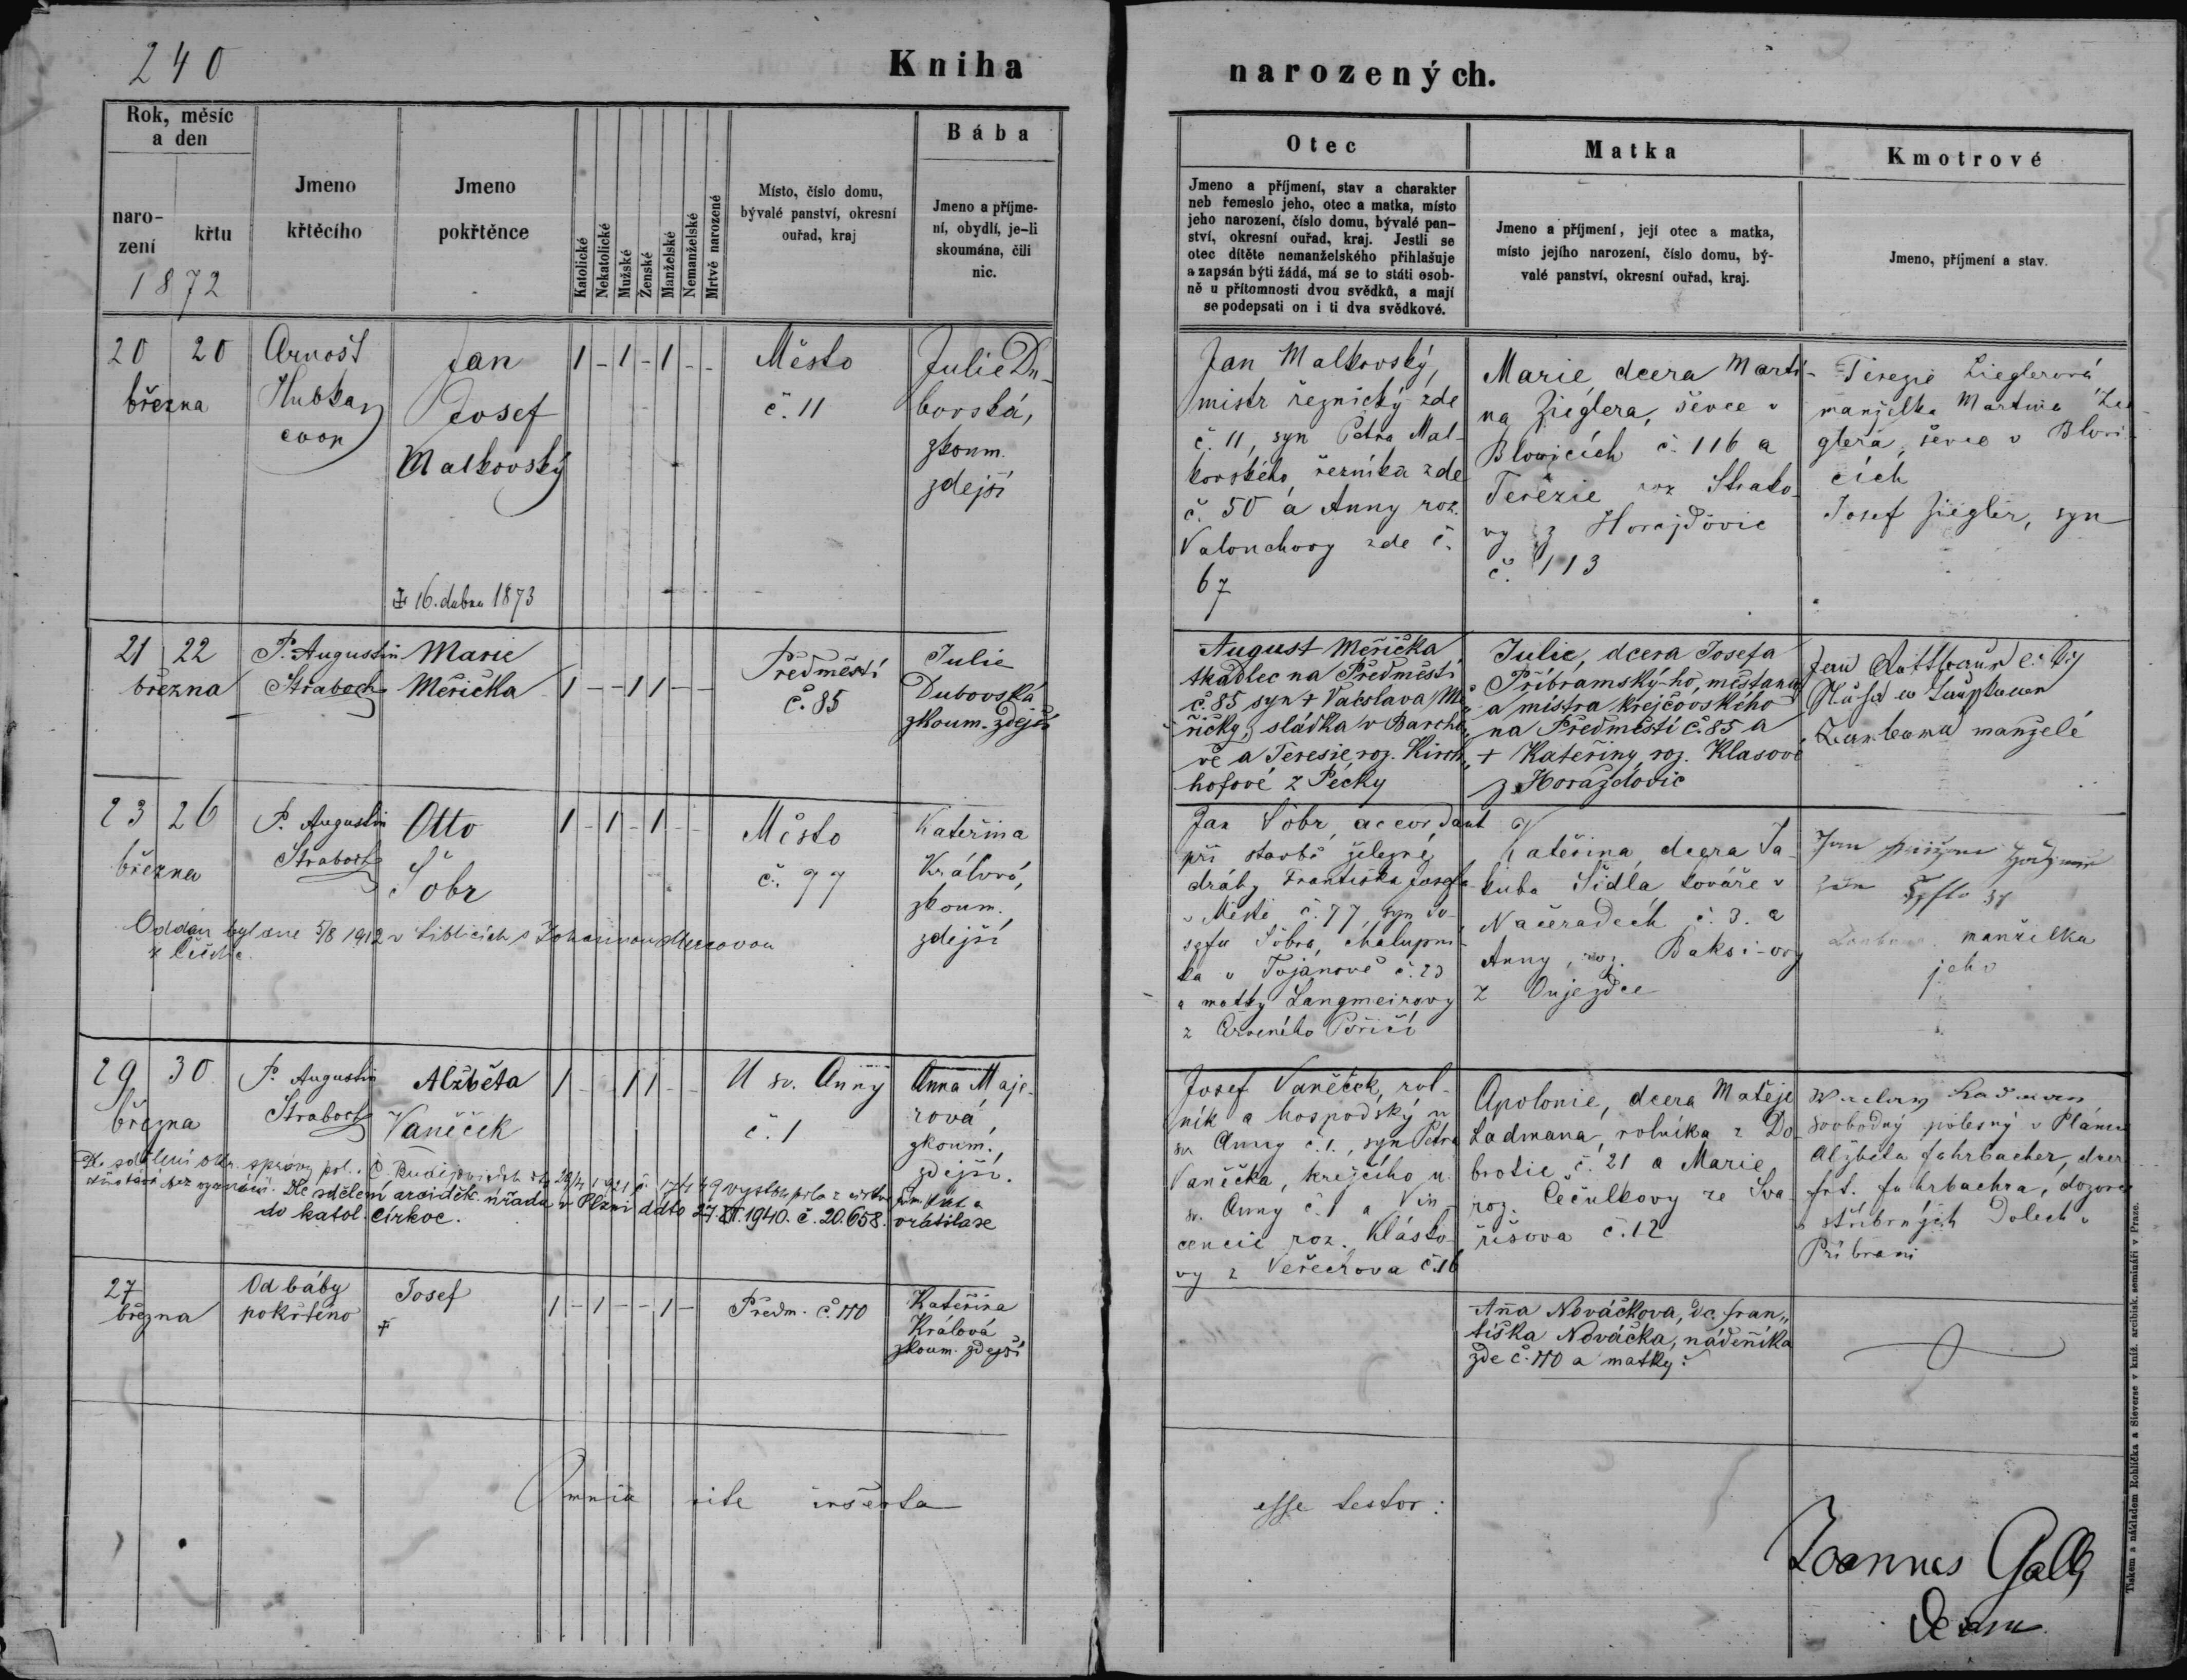 240
Kniha
narozených.
Rok, měsíc
a den
naro-
zení
křtu
1872
Jmeno
křtěcího
Jmeno
pokřtěnce
Katolické
Nekatolické
Mužské
Ženské
Manželské
Nemanželské
Mrtvě narozené
Místo, číslo domu,
bývalé panství, okresní
ouřad, kraj
Bába
Jmeno a příjme-
ní, obydlí, je-li
skoumána, čili
nic.
Otec
Jmeno a příjmení, stav a charakter
neb řemeslo jeho, otec a matka, místo
jeho narození, číslo domu, bývalé pan-
ství, okresní ouřad, kraj. Jestli se
otec dítěte nemanželského přihlašuje
a zapsán býti žádá, má se to státi osob-
ně u přítomnosti dvou svědků, a mají
se podepsati on i ti dva svědkové.
Matka
Jmeno a příjmení, její otec a matka,
místo jejího narození, číslo domu, bý-
valé panství, okresní ouřad, kraj.
Kmotrové
Jmeno, příjmení a stav.
20 20
března
Arnošt
Hubka
coop
Jan
Josef
Malkovský
‡ 16. dubna 1873
1 - 1 - 1 - -
Město
č. 11
Julie Du-
bovská,
zkoum.
zdejší
Jan Malkovský,
mistr řeznický zde
č. 11, syn Petra Mal-
kovského, řezníka zde
č. 50 a Anny roz.
Valouchovy zde č.
67
Marie, dcera Marti-
na Zieglera, ševce v
Blovicích č. 116 a
Terezie roz. Strako-
vy z Horažďovic
č. 113
Terezie Zieglerová
manželka Martina Zie-
glera, ševce v Blovi-
cích
Josef Ziegler, syn
21 22
března
P. Augustin
Straboch
Marie
Měřička
1 - - 1 1 - -
Předměstí
č. 85
Julie
Dubovská
zkoum. zdejší
August Měřička
tkadlec na Předměstí
č. 85 syn + Václava Mě-
řičky, sládka v Barcho-
vě a Teresie roz. Kirch-
hofové z Pecky
Julie, dcera Josefa
Příbramský-ho, měšťana
a mistra krejčovského
na Předměstí č. 85 a
+ Kateřiny roz. Klasové
z Horažďovic
manželé
23 26
března
P. Augustin
Straboch
Otto
Šobr
1 - 1 - 1 - -
Město
č. 77
Kateřina
Králová,
zkoum.
zdejší
Oddán byl dne 5/8 1912 v Liblicích s Johannou
Jan Šobr, accordant
při stavbě železné
dráhy Františka Josefa
v Městě č. 77, syn Jo-
sefa Šobra, chalupní-
ka v Tojánově č. 23
a matky Langmeirovy
z Červeného Poříčí
Kateřina dcera Ja-
kuba Šidla kováře v
Načeradech č. 3. a
Anny, roz. Baksi-ovy
z Oujezdce
Jan
manželka
jeho
29 30
března
P. Augustin
Straboch
Alžběta
Vaněček
1 - - 1 1 - -
U sv. Anny
č. 1
Anna Maje-
rová
zkoum.
zdejší.
Dle sdělení okr. správy pol. Č. Budějovicích 1921 č. 17449 vystoupila z církve řím. kat. a
zůstává bez vyznání. Dle sdělení arciděk. úřadu v Plzni ddto 27.XII.1940. č. 20.658. vrátila se
do katol. církve.
Josef Vaněček, rol-
ník a hospodský u
sv. Anny č. 1., syn Petra
Vaněčka, krejčího u
sv. Anny č. 1 a Vin-
cencie roz. Klásto-
vy z Veřechova č. 16
Apolonie, dcera Matěje
Ladmana, rolníka z Do-
brotic č. 21 a Marie
roz. Čečulkovy ze Sva-
řišova č. 12
svobodný polesný v Plánici
Alžběta Fahrbacher, dcera
Frt. Fahrbachra, dozorce
v stříbrných Dolech v
Příbrami
27
března
Od báby
pokřtěno
Josef
‡
1 - 1 - - 1 -
Předm. č. 110
Kateřina
Králová
zkoum. zdejší
Anna Nováčkova, dc. Fran„
tiška Nováčka, nádeníka
zde č. 110 a matky:
Omnia rite inserta
esse testor:
Joannes Galli
Decan
Tiskem a nákladem Rohlíčka a Sieverse v kníž. arcibisk. semináři v Praze.